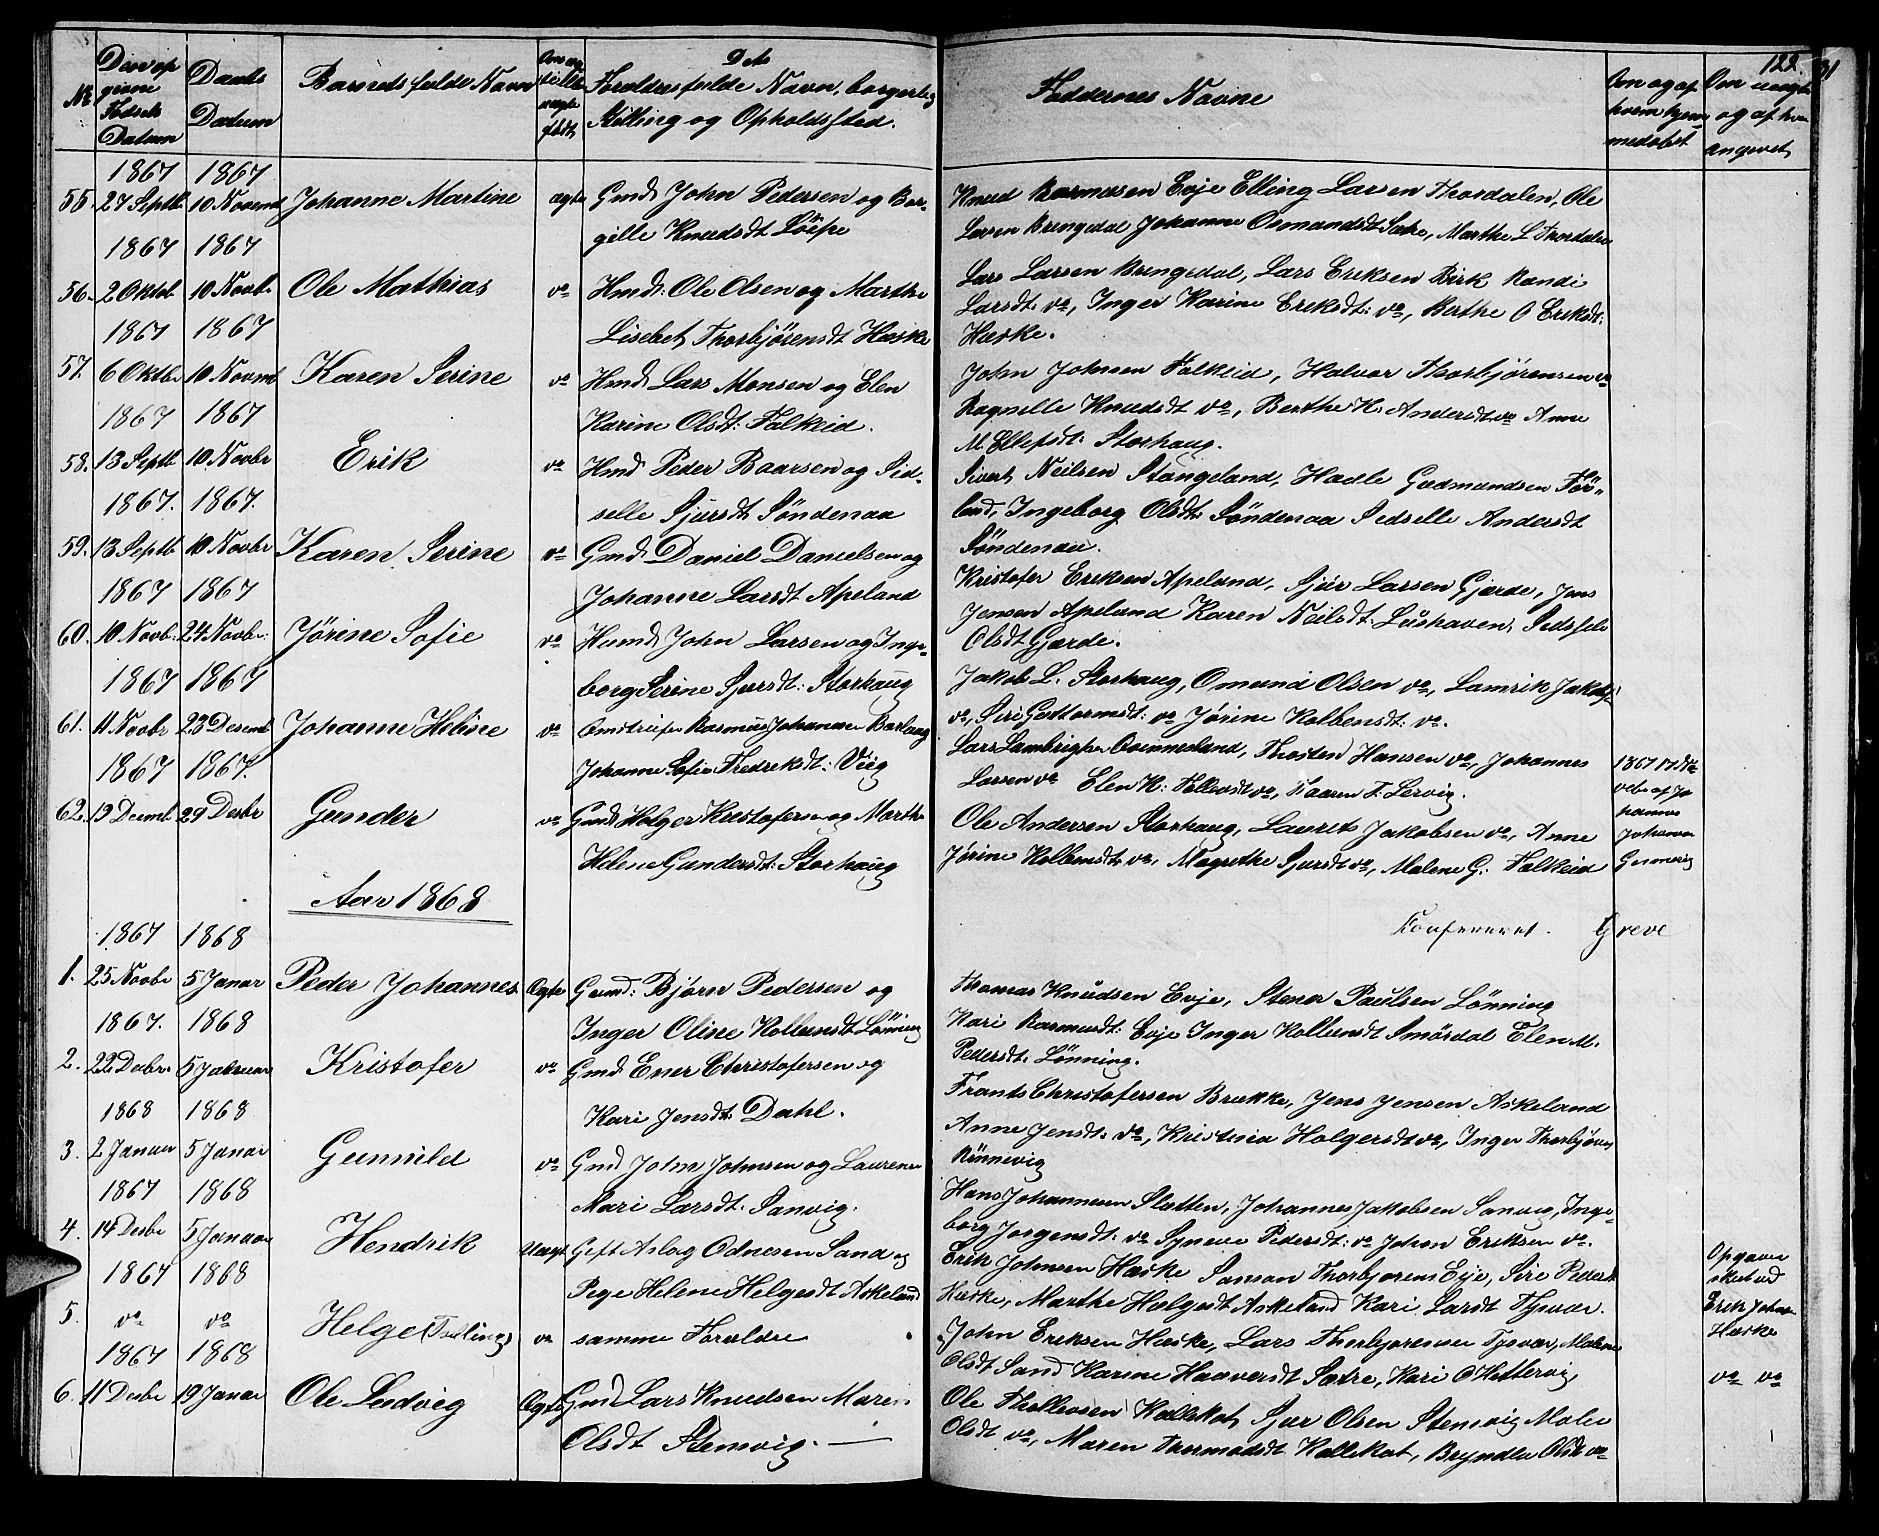 122. 31
Nr Den opgivne Fødsels Datum Daabs Datum Barnets fulde Navn Om ægte eller uægte født Dets Forældres fulde Navn, borgerlig Stilling og Opholdssted. Faddernes Navne Om og af hvem hjemmedøbt Om uægte og af hvem angivet
1867 1867
55. 27 Septb 10 Novemb Johanne Martine ægte Gmd John Pedersen og Bor-
gille Knudsdt Løipe
Knud Rasmusen Evje Elling Larsen Thordalen, Ole
Larsen Bringedal Johanne Osmundsdt Sætre, Marthe L Thordalen
1867 1867
56. 2 Oktob 10 Novbr Ole Mathias do Hmd: Ole Olsen og Marthe
Lisebet Thorbjørensdt Hæske
Lars Larsen Bringedal, Lars Eriksen Birk Randi
Larsdt: do, Inger Karine Eriksdt: do, Berthe O Eriksdt:
Hæske.
1867 1867
57. 6 Oktbr 10 Novmb Karen Serine do Hmd Lars Monsen og Elen
Karine Olsdt: Falkeid.
John Johnsen Falkeid, Halvor Thorbjørensen do
Ragnelle Knudsdt do, Berthe K. Andersdt do Anne
M. Ellefsdt: Storhaug.
1867 1867
58. 13 Septb 10 Novbr Erik do Hmd Peder Baarsen og Sid-
selle Sjursdt Søndenaa
Sivert Neilsen Stangeland, Hadle Gudmundsen Før-
land, Ingeborg Olsdt Søndenaa Sedselle Andersdt
Søndenaa.
1867. 1867.
59. 13 Septb 10 Novbr Karen Serine do Gmd Daniel Danielsen og
Johanne Larsdt Apeland
Kristofer Eriksen Apeland, Sjur Larsen Gjærde, Jens
Jensen Apeland Karen Neilsdt: Lushaven, Sedselle
Olsdt Gjærde.
1867 1867
60. 10 Novb. 24 Novbr: Jørine Sofie do Husmd John Larsen og Inge-
borg Serine Sjursdt: Storhaug
Jakob L. Storhaug, Omund Olsen do, Lamrik Jakobs:
do, Siri Guttormsdt: do Jørine Kolbensdt: do.
1867 1867
61. 11 Novbr 23 Desemb Johanne Heline do Rasmus Johansen
Johanne Sofie Fredreksdt: Viig
Lars Lambrigtsen Qvemmeland, Thosten Hansen do, Johannes
Larsen do Elen K: Tollevsdt do, Taaren T. Lervig.
1867 1867.
62. 13 Decmb 29 Desbr Gunder do Gmd Holger Kristofersen og Marthe
Helene Gundersdt: Storhaug
Ole Andersen Storhaug, Laurits Jakobsen do, Anne
Jørine Kolbensdt do, Magrethe Sjursdt do, Malene G: Falkeid
Aar 1868
Konfereret. Greve
1867 1868
1. 25 Novbr 5 Janar Peder Johannes Ægte Gmd: Bjørn Pedersen og
Inger Oline Kolbensdt Lønning
Thomas Knudsen Evje, Stener Paulsen Lønning
Kari Rasmusdt: Evje Inger Kolbensdt Smørdal Elen M.
Pedersdt: Lønning.
1867. 1868
2. 22 Debr. 5 Januar Kristofer do Gmd Ener Christofersen og
Kari Jensdt Dahl.
Frants Christofersen Brække, Jens Jensen Askeland
Anne Jensdt: do, Kristina Holgersdt do, Inger Thorbjørns
Rønnevig
1868 1868
3. 2 Januar 5 Janar Gunuild do Gmd John Johnsen og Laurense
Mari Larsdt. Sanvig.
Hans Johannesen Slatten, Johannes Jakobsen Sanvig, Inge-
borg Jorgensdt: do Syneve Pedersdt: do Johan Eriksen do.
1867 1868
4. 14 Desbr 5 Januar Hendrik Uægt Gift Aslag Odnesen Sand og
Pege Helene Helgesdt Askeland
Erik Johnsen Hæske Samson Thorbjørens Evje, Sire Pedersdt
Hæske, Marthe Helgesdt Askeland Kari Larsdt Tysvær.
Opgaven
sket ved
Erik Johnsen
Hæske
1867 1868
5. do do Helge (Tvilling) do samme Forældre
John Eriksen Hæske, Lars Thorbjørensen Tysvær, Malene
Olsdt Sand Karine Haaversdt Sætre, Kari O Hettervig
do do
1867 1868
6. 11 Desbr 19 Janar Ole Ludvig Ægte Gmd Lars Knudsen Maren
Olsdt Stemvig.
Ole Thollevsen Kallekot, Sjur Olsen Stemvig Male
Olsdt do, Maren Thormodsdt Kallekot, Bryndele Olsdt do